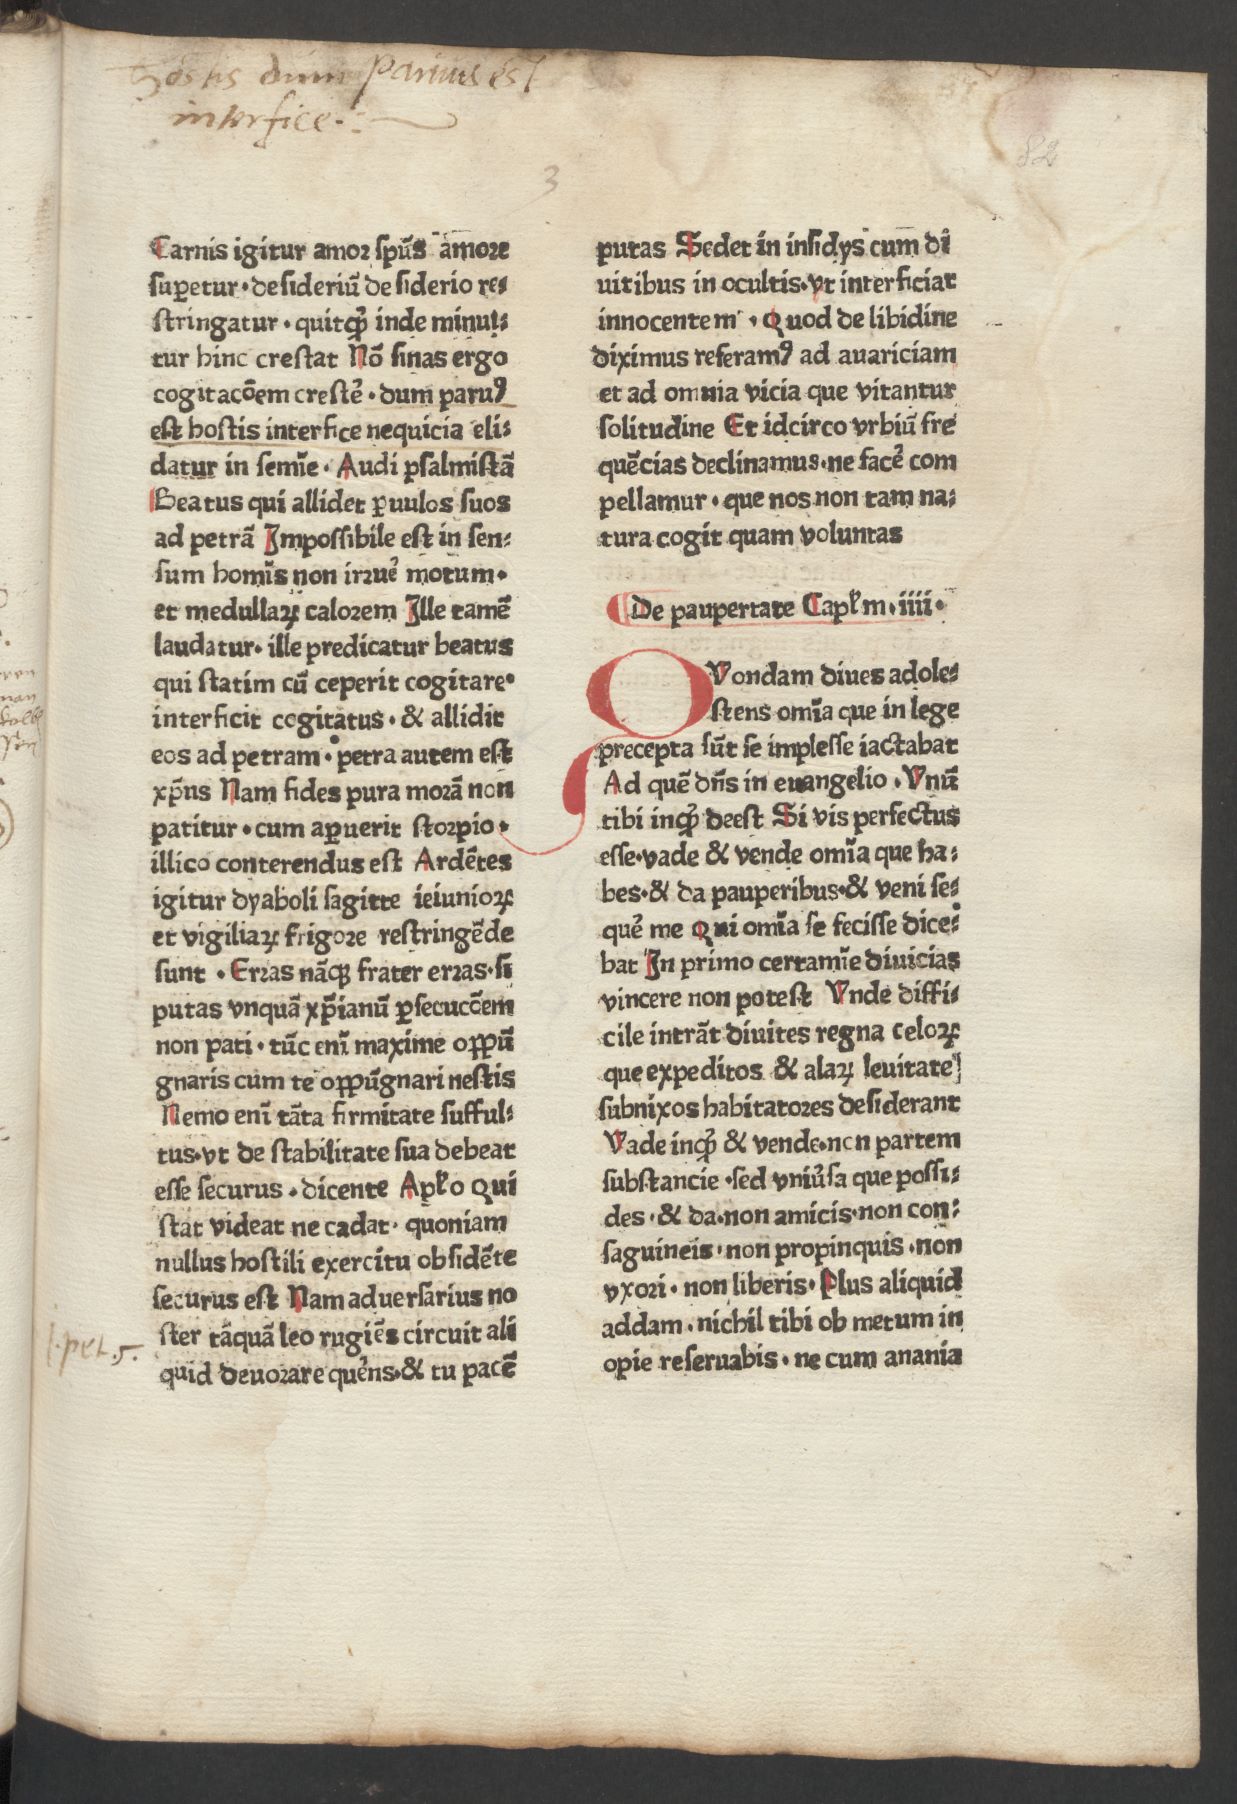 Hostis dum Parius est
interfice.
82
3
Carnis igitur amor spūs amore
supetur · desideriū desiderio re⸗
stringatur · quitqͥd inde minui⸗
tur hinc crescat Nō sinas ergo
cogitacōem crescē̉ · dum paruꝯ
est hostis interfice nequicia eli⸗
datur in semīe · Audi psalmistā
Beatus qui allidet ꝑuulos suos
ad petrā Impossibile est in sen⸗
sum homīs non irruē̉ motum ·
et medullaꝝ calorem Ille tamē
laudatur · ille predicatur beatus
qui statim cū ceperit cogitare ·
interficit cogitatus · & allidit
eos ad petram · petra autem est
xp̄us Nam fides pura morā non
patitur · cum apuerit scorpio ·
illico conterendus est Ardētes
igitur dyaboli sagitte ieiunioꝝ
et vigiliaꝝ frigore restringēde
sunt · Erras nāqꝫ frater erras · si
putas vnquā xp̄ianū ꝑsecucōem
non pati · tūc enī maxime oppū
gnaris cum te oppūgnari nescis
Nemo enī tāta firmitate sufful⸗
tus · vt de stabilitate sua debeat
esse securus · dicente Apło Qui
stat videat ne cadat · quoniam
nullus hostili exercitu obsidēte
securus est Nam aduersarius no
ster tāquā leo rugiēs circuit ali
quid deuorare quēns · & tu pacē
1·pet·5·
putas Sedet in insidys cum di
uitibus in ocultis · vt interficiat
innocentem · Quod de libidine
diximus referamꝯ ad auariciam
et ad omnia vicia que vitantur
solitudine Et idcirco vrbiū fre
quēcias declinamus · ne facē̉ com
pellamur · que nos non tam na⸗
tura cogit quam voluntas
De paupertate Capłm · iiii ·
QVondam diues adole⸗
scens omīa que in lege
precepta sūt se implesse iactabat
Ad quē dn̄s in euangelio · Vnū
tibi inqͥd deest Si vis perfectus
esse · vade & vende omīa que ha⸗
bes · & da pauperibus · & veni se⸗
quē̉ me Qui omīa se fecisse dice⸗
bat In primo certamīe diuicias
vincere non potest Vnde diffi⸗
cile intrāt diuites regna celoꝝ
que expeditos & alaꝝ leuitate
subnixos habitatores desiderant
Vade inqͥd & vende · non partem
substancie · sed vniūsa que possi⸗
des · & da · non amicis · non con⸗
saguineis · non propinquis · non
vxori · non liberis · Plus aliquid
addam · nichil tibi ob metum in
opie reseruabis · ne cum anania